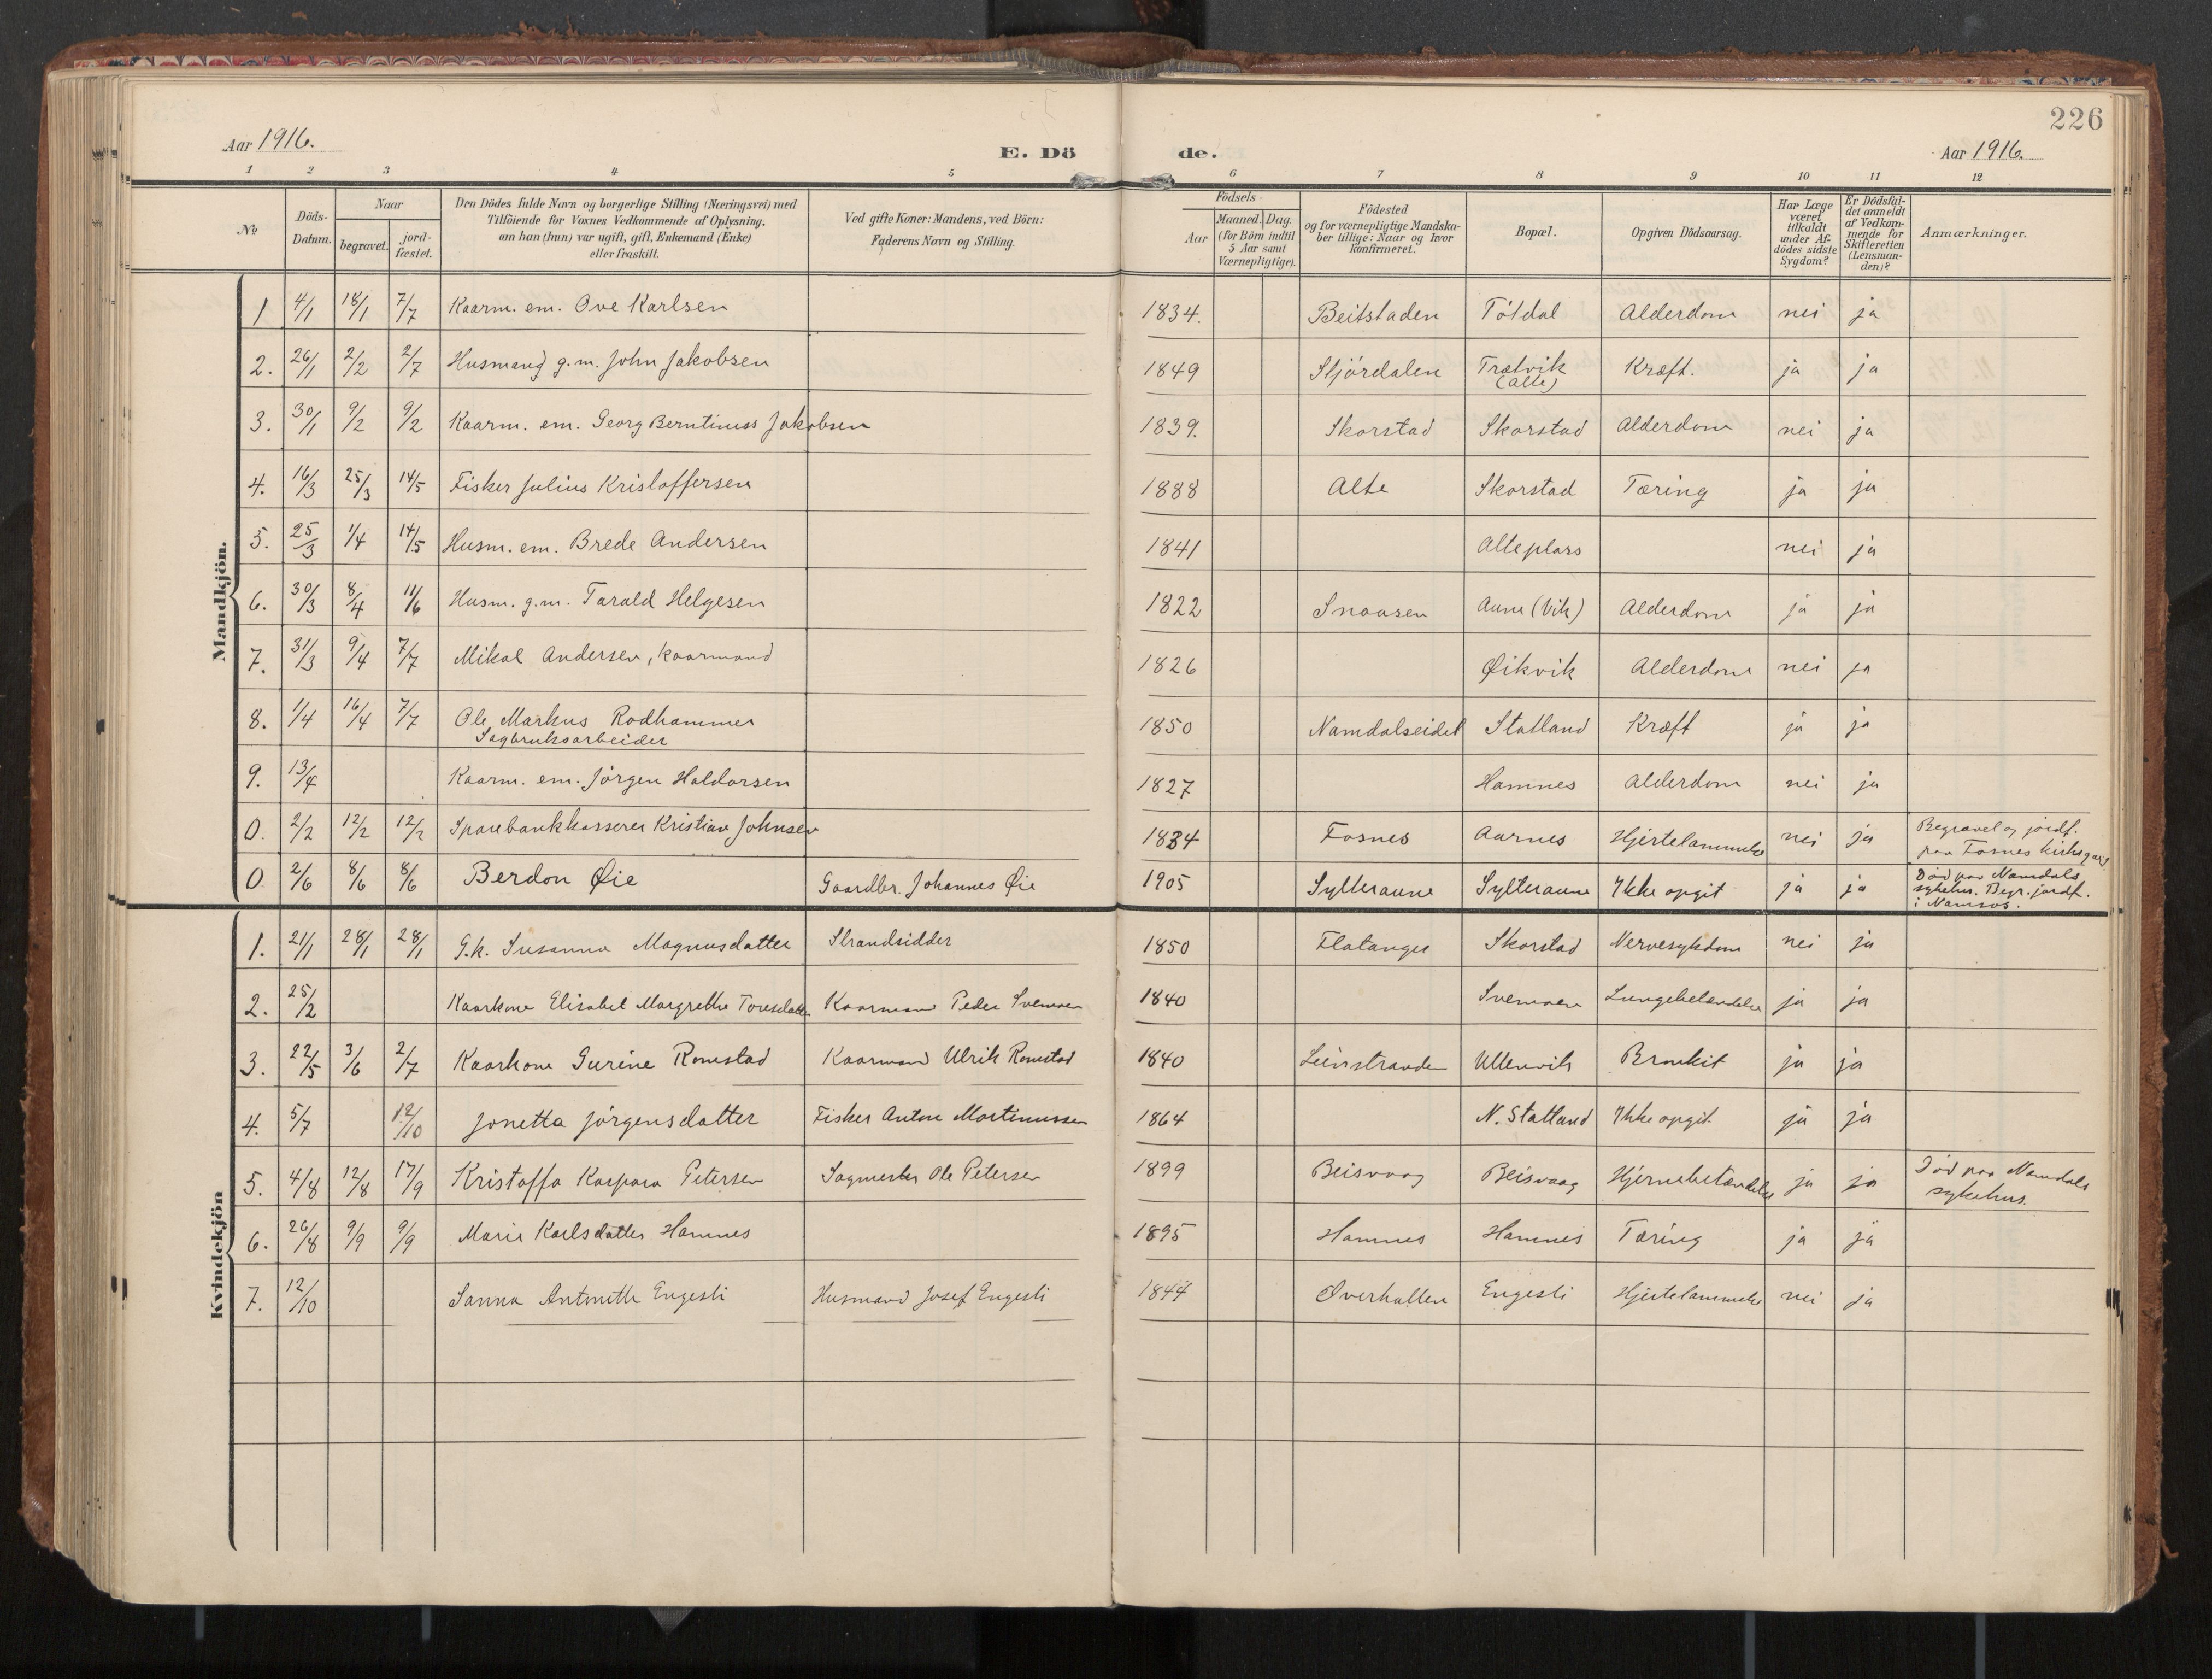 226
Aar 1916. E. Dö de. Aar 1916.
1 2 3 4 5 6 7 8 9 10 11 12
No Döds-Datum. Naar begravet. jord-fæstet. Den Dödes fulde Navn og borgerlige Stilling (Næringsvei) med Tilföiende for Voxnes Vedkommende af Oplysning, om han (hun) var ugift, gift, Enkemand (Enke) eller fraskilt. Ved gifte Koner: Mandens, ved Börn: Faderens Navn og Stilling. Födsels- Aar Maaned. Dag. (for Börn indtil 5 Aar samt Værnepligtige). Födested og for værnepligtige Mandskaber tillige: Naar og hvor konfirmeret. Bopæl. Opgiven Dödsaarsag. Har Læge været tilkaldt under Afdödes sidste Sygdom? Er Dödsfaldet anmeldt af Vedkommende for Skifteretten (Lensmanden)? Anmærkninger.
Mandkjön.
1 4/1 18/1 7/7 Kaarm. em. Ove Karlsen 1834. Beitstaden Tötdal Alderdom nei ja
2. 26/1 2/2 2/7 Husmand g.m. John Jakobsen 1849 Stjördalen Trætvik (Alte) Kræft. ja ja
3. 30/1 9/2 9/2 Kaarm. em. Georg Berntinuss Jakobsen 1839. Skorstad Skorstad Alderdom nei ja
4. 16/3 25/3 14/5 Fisker Julius Kristoffersen 1888 Alte Skorstad Tæring ja ja
5. 25/3 1/4 14/5 Husm. em. Brede Andersen 1841 Alteplass nei ja
6. 30/3 8/4 11/6 Husm. g.m. Tarald Helgesen 1822 Snaasen Aune (Vik) Alderdom ja ja
7. 31/3 9/4 7/7 Mikal Andersen, kaarmand 1826 Øikvik Alderdom nei ja
8. 1/4 16/4 7/7 Ole Markus Rodhammer 1850 Namdalseidet Statland Kræft ja ja
Sagbruksarbeider
9. 13/4 Kaarm. em. Jörgen Haldorsen 1827 Hamnes Alderdom nei ja
0. 2/2 12/2 12/2 Sparebankkasserer Kristian Johnsen 1834 Fosnes Aarnes Hjertelammelse nei ja Begravet og jordf.
paa Fosnes kirkegaard
0 2/6 8/6 8/6 Berdon Øie Gaardbr. Johannes Øie 1905 Sylteraune Sylteraune Ikke opgit ja ja Död paa Namdals
sykehus. Begr. jordf.
i Namsos.
Kvindekjön
1. 21/1 28/1 28/1 G.k. Susanna Magnusdatter Strandsidder 1850 Flatanger Skorstad Nervesykdom nei ja
2. 25/2 Kaarkone Elisabet Margrethe Toresdatter Kaarmand Peder Svemoen 1840 Svemoen Lungebetændelse ja ja
3. 22/5 3/6 2/7 Kaarkone Gurine Romstad Kaarmand Ulrik Romstad 1840 Leinstranden Ullenvik Bronkit ja ja
4. 5/7 12/10 Jonetta Jörgensdatter Fisker Anton Martinussen 1864 N. Statland Ikke opgit. ja ja
5. 4/8 12/8 17/9 Kristoffa Kaspara Petersen Sagmester Ole Petersen 1899 Beisvaag Beisvaag Hjernebetændelse ja ja Död paa Namdals
sykehus.
6. 26/8 9/9 9/9 Marie Karlsdatter Hamnes 1895 Hamnes Hamnes Tæring ja ja
7. 12/10 Sanna Antonette Engesli Husmand Josef Engesli 1844 Overhallen Engesli Hjertelammelse nei ja